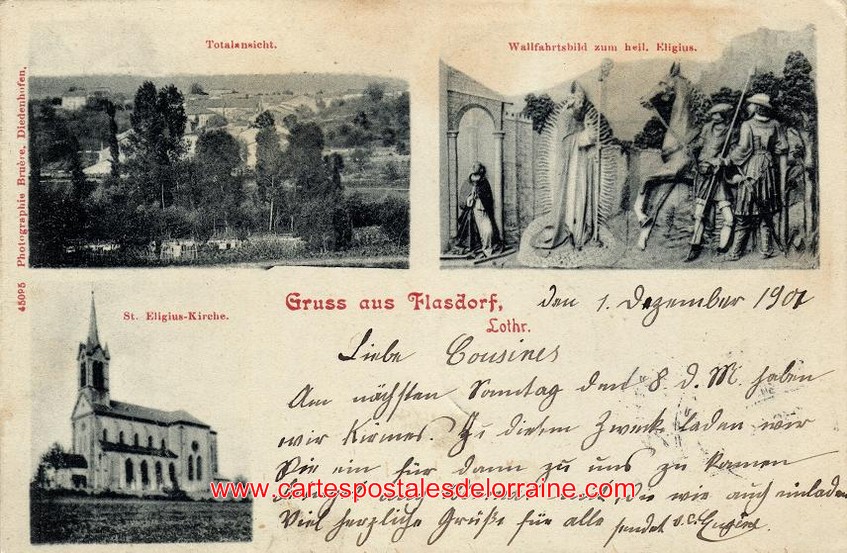 Totalansicht.
Wallfahrtsbild zum heil. Eligius.
45095 Photographie Bruère, Diedenhofen.
Gruss aus Flasdorf,
Lothr.
den 1. Dezember 1901
St. Eligius-Kirche.
Liebe Cousines
Am nächsten Sonntag den 8 d. M. haben
wir Kirmes. Zu diesem Zwecke laden wir
Sie ein für dann zu uns zu kommen
wie auch einladen
www.cartespostalesdelorraine.com
Viel herzliche Grüße für alle sendet